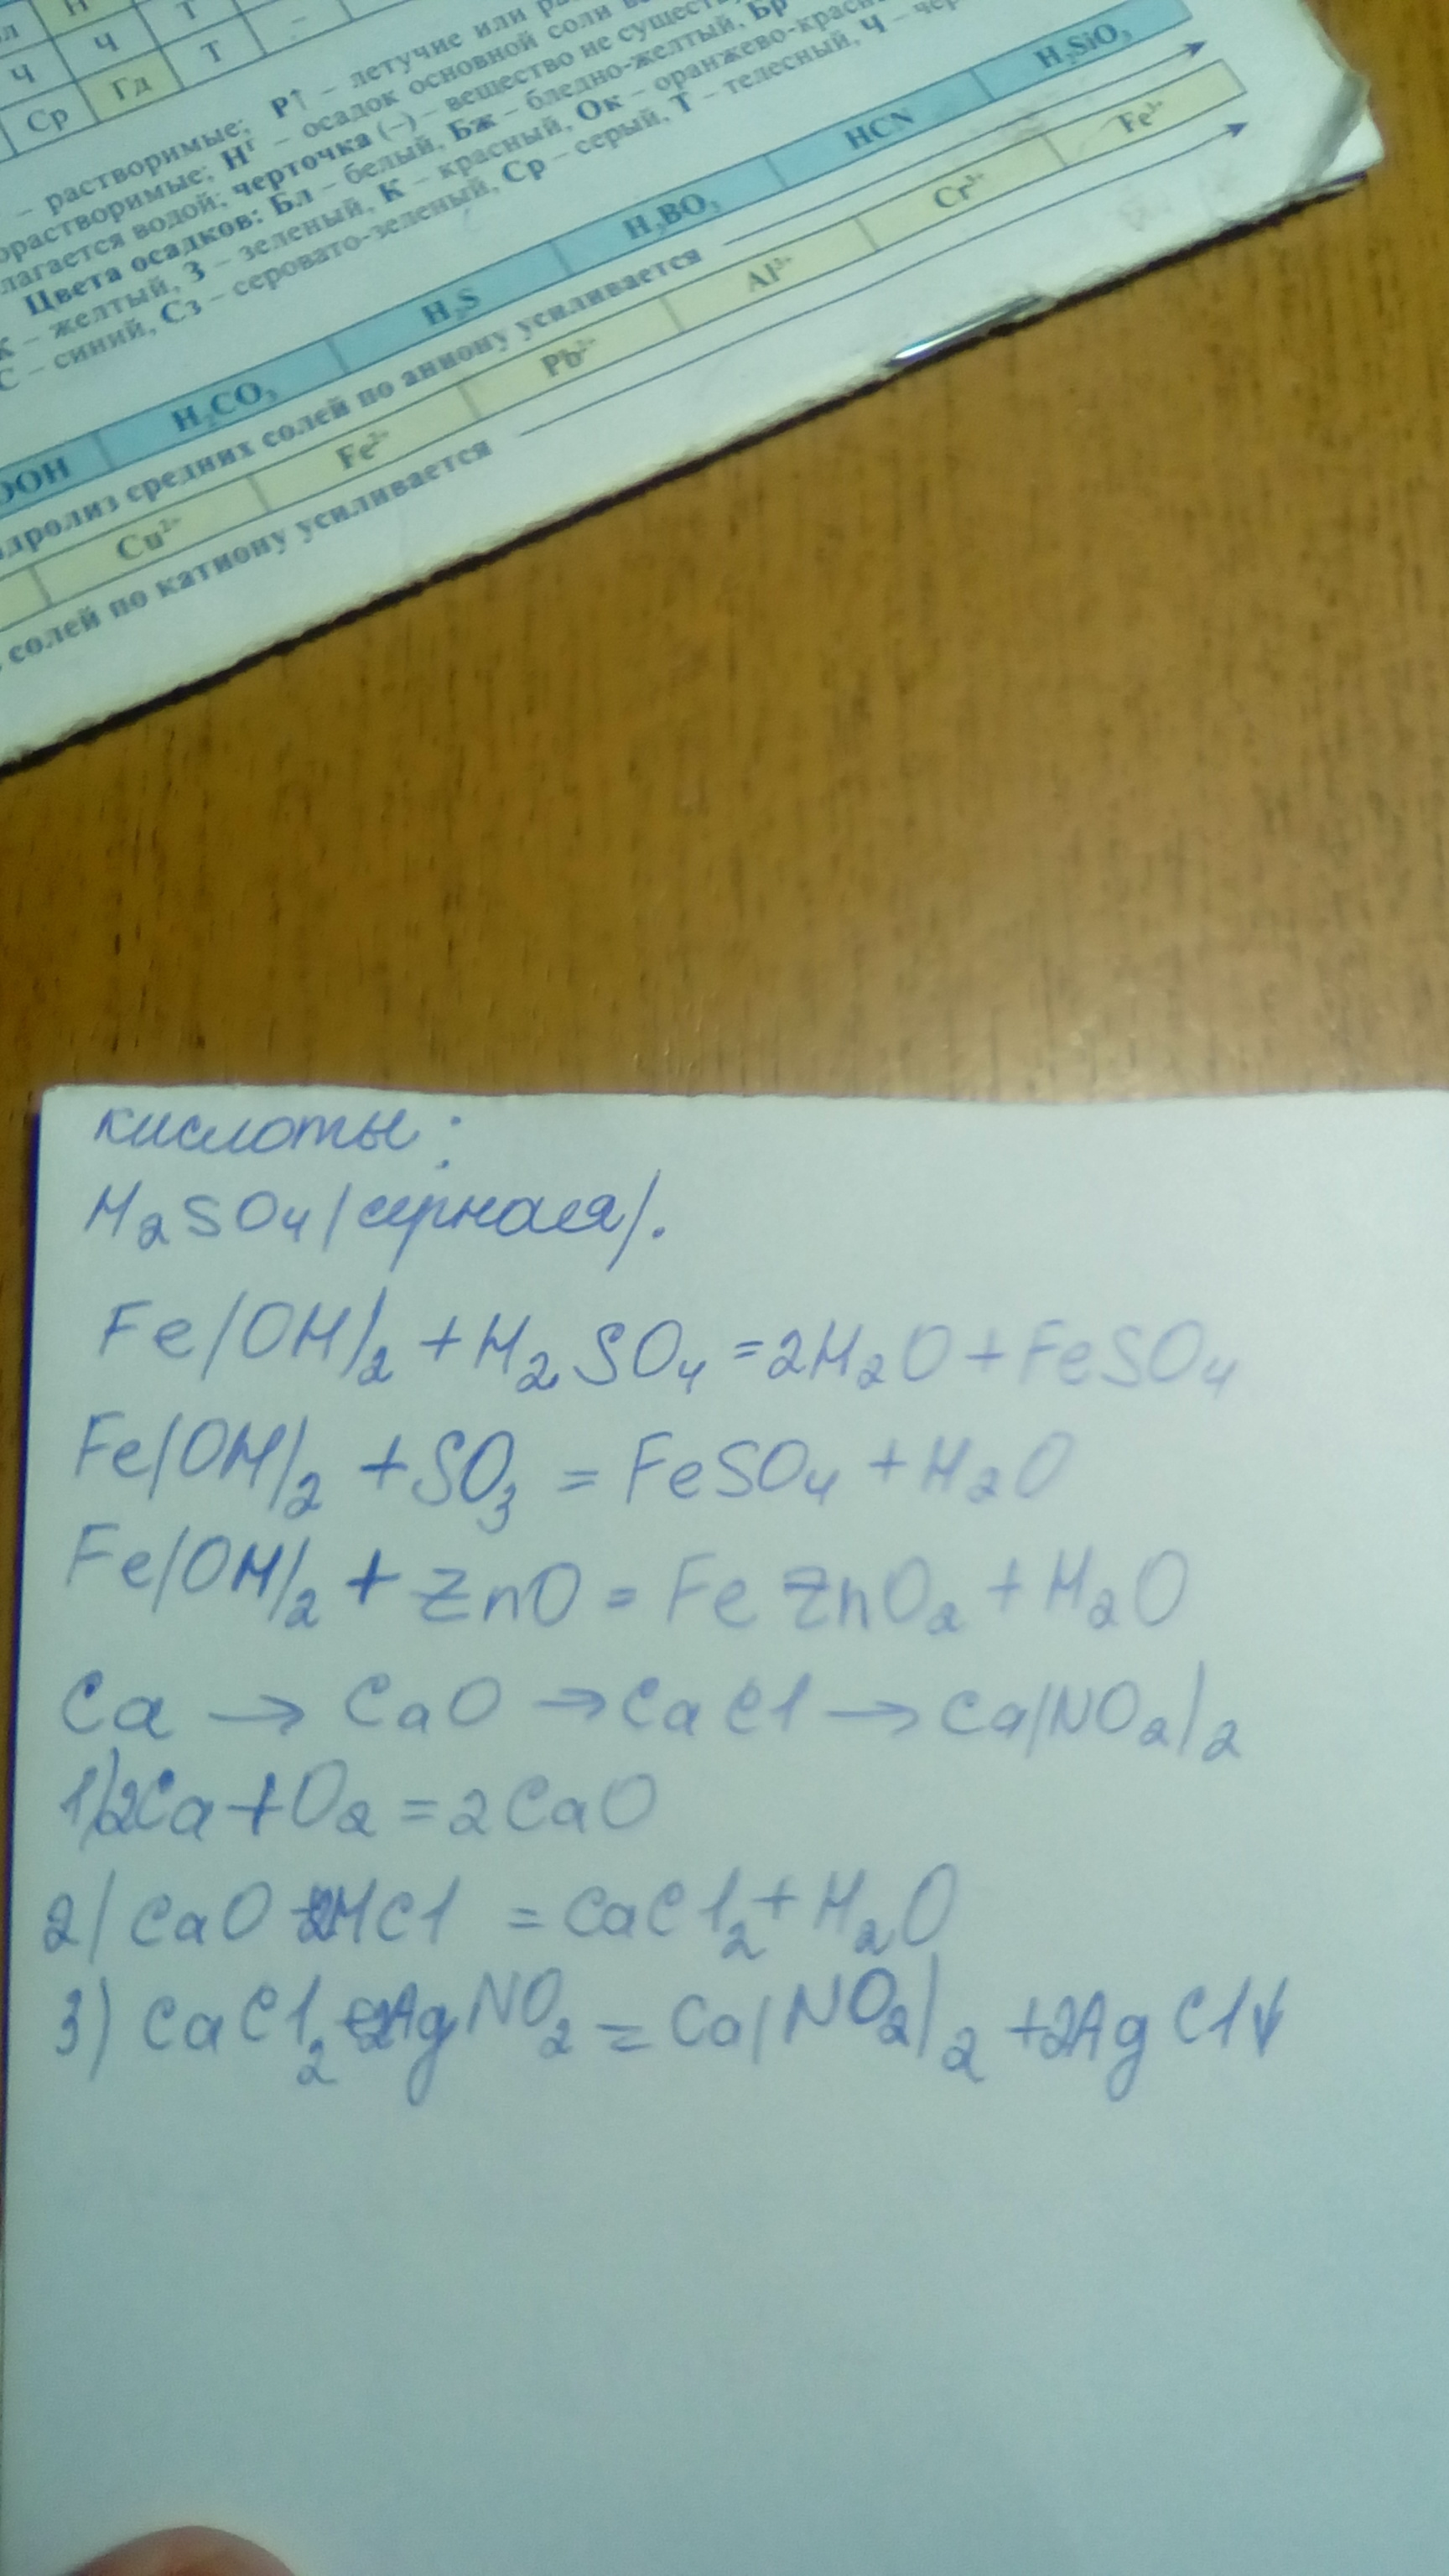 Ч Ч Т –
Ср Гд Т
– растворимые; Р↑ – летучие или
Нг – осадок основной соли
лагается водой; черточка (–) – вещество не
Цвета осадков: Бл – белый, Бж – бледно-желтый, Бр
– желтый, З – зеленый, К – красный, Ок –
С – синий, Сз – серовато-зеленый, Ср – серый, Т – телесный, Ч –
OOH H₂CO₃ H₂S H₃BO₃ HCN H₂SiO₃
средних солей по аниону усиливается
Cu²⁺ Fe²⁺ Pb²⁺ Al³⁺ Cr³⁺ Fe³⁺
солей по катиону усиливается
кислоты:
H₂SO₄ (серная).
Fe(OH)₂ + H₂SO₄ = 2H₂O + FeSO₄
Fe(OH)₂ + SO₃ = FeSO₄ + H₂O
Fe(OH)₂ + ZnO = FeZnO₂ + H₂O
Ca → CaO → CaCl → Ca(NO₂)₂
1) 2Ca + O₂ = 2CaO
2) CaO + 2HCl = CaCl₂ + H₂O
3) CaCl₂ + 2AgNO₂ = Ca(NO₂)₂ + 2AgCl↓